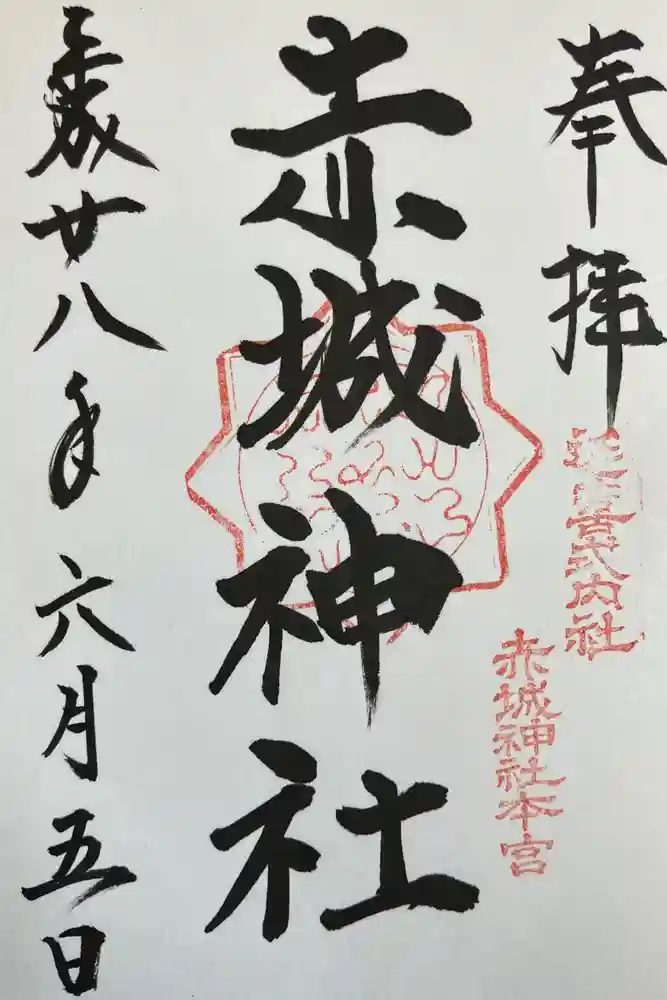 奉拝
延喜式内社
赤城神社本宮
赤城神社
平成廿八年
六月五日